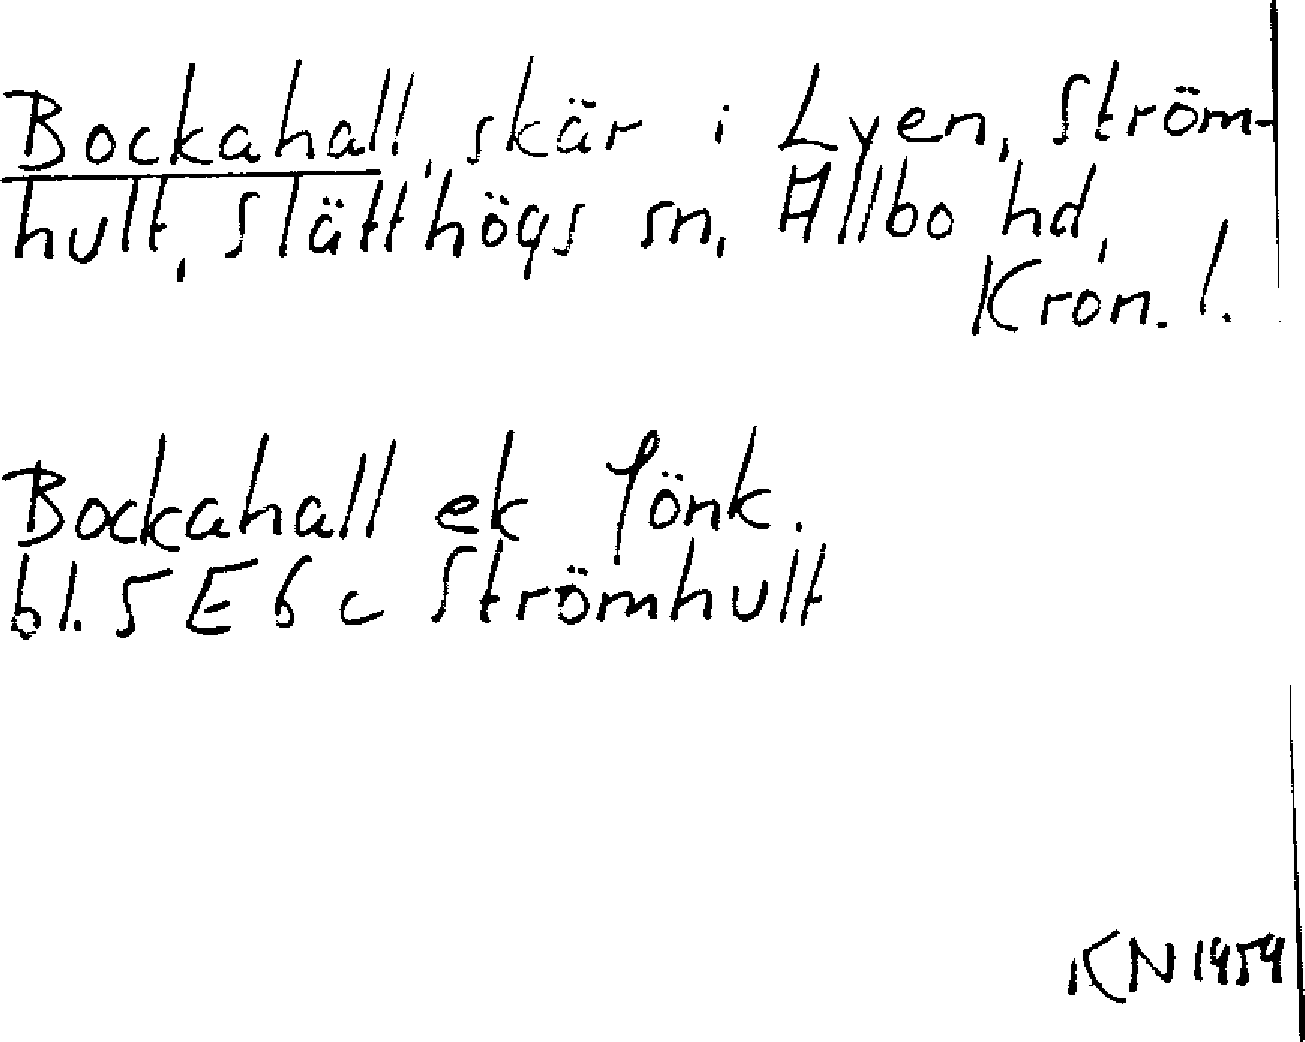 Bockahall, skär i Lyen, Ström-
hult, Slätthögs sn, Allbo hd,
Kron. l.
Bockahall ek Jönk.
bl. 5 E 6 c Strömhult
KN 1959